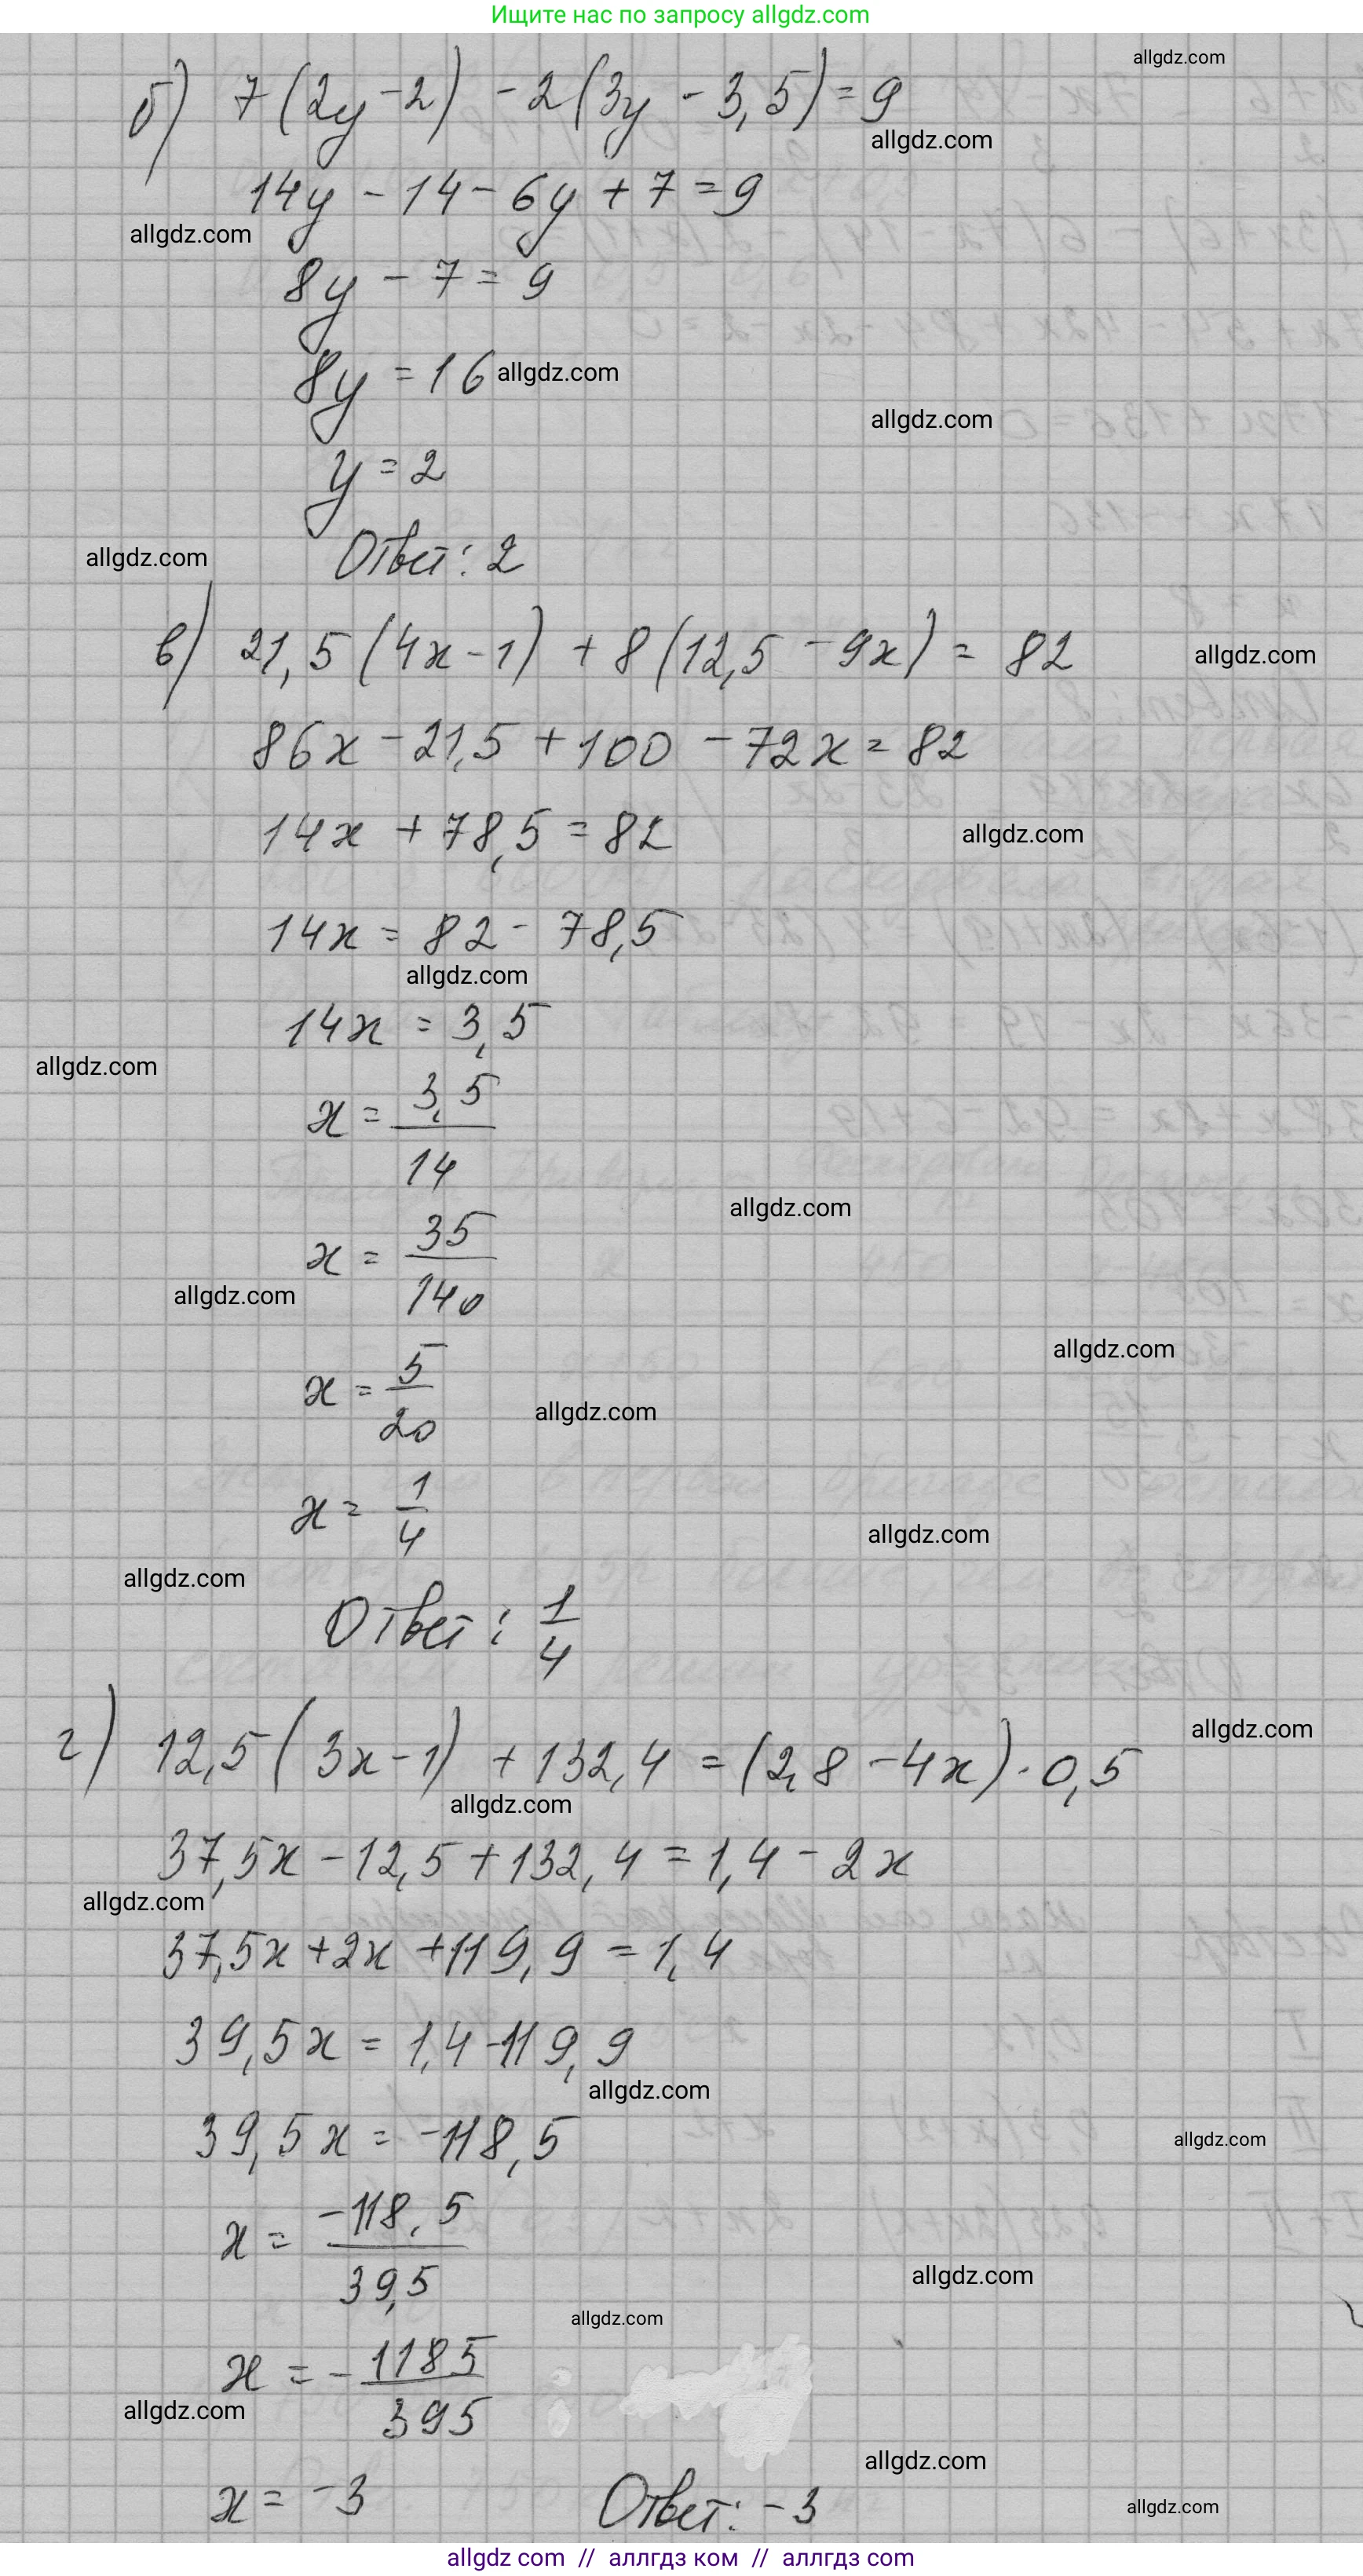 Ищите нас по запросу allgdz.com
allgdz.com
б) 7(2y-2) - 2(3y - 3,5) = 9
allgdz.com
14y - 14 - 6y + 7 = 9
allgdz.com
8y - 7 = 9
8y = 16
allgdz.com
allgdz.com
y = 2
Ответ: 2
allgdz.com
в) 21,5(4x-1) + 8(12,5 - 9x) = 82
allgdz.com
86x - 21,5 + 100 - 72x = 82
14x + 78,5 = 82
allgdz.com
14x = 82 - 78,5
allgdz.com
14x = 3,5
allgdz.com
x = 3,5/14
allgdz.com
x = 35/140
allgdz.com
allgdz.com
x = 5/20
allgdz.com
x = 1/4
allgdz.com
allgdz.com
Ответ: 1/4
allgdz.com
г) 12,5(3x-1) + 132,4 = (2,8 - 4x)·0,5
allgdz.com
37,5x - 12,5 + 132,4 = 1,4 - 2x
allgdz.com
37,5x + 2x + 119,9 = 1,4
39,5x = 1,4 - 119,9
allgdz.com
39,5x = -118,5
allgdz.com
x = -118,5/39,5
allgdz.com
allgdz.com
x = - 1185/395
allgdz.com
allgdz.com
x = -3 Ответ: -3
allgdz.com
allgdz com // аллгдз ком // аллгдз com